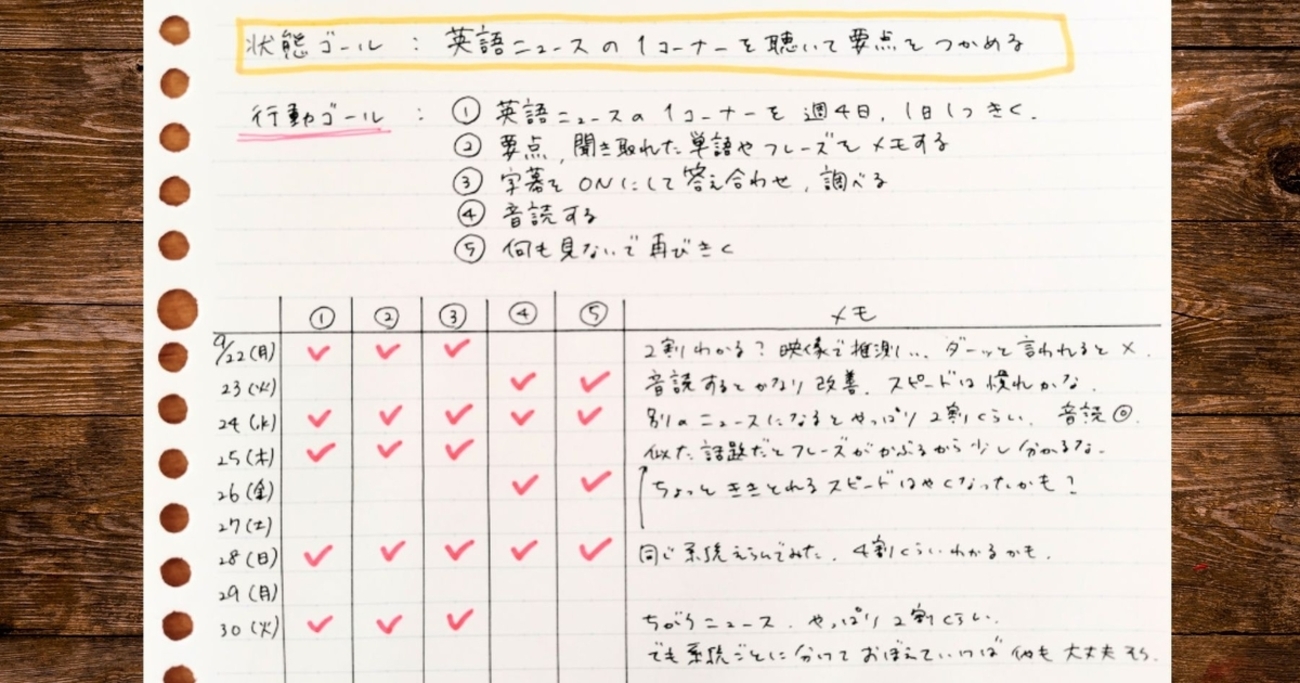 状態ゴール : 英語ニュースの1コーナーを聴いて要点をつかめる
行動ゴール : ① 英語ニュースの1コーナーを週4日、1日1つきく.
② 要点、聞き取れた単語やフレーズをメモする
③ 字幕をONにして答え合わせ、調べる
④ 音読する
⑤ 何も見ないで再びきく
① ② ③ ④ ⑤ メモ
9/22(月) ✓ ✓ ✓ 2割わかる? 映像で推測し... ダーッと言われると×.
23(火) ✓ ✓ 音読するとかなり改善. スピードは慣れかな.
24(水) ✓ ✓ ✓ ✓ ✓ 別のニュースになるとやっぱり2割くらい. 音読◎.
25(木) ✓ ✓ ✓ 似た話題だとフレーズがかぶるから少し分かるな.
26(金) ✓ ✓ ちょっとききとれるスピードはやくなったかも?
27(土)
28(日) ✓ ✓ ✓ ✓ ✓ 同じ系統えらんでみた. 4割くらいわかるかも.
29(月)
30(火) ✓ ✓ ✓ ちがうニュース. やっぱり2割くらい.
でも系統ごとに分けておぼえていけば 他も大丈夫そう.